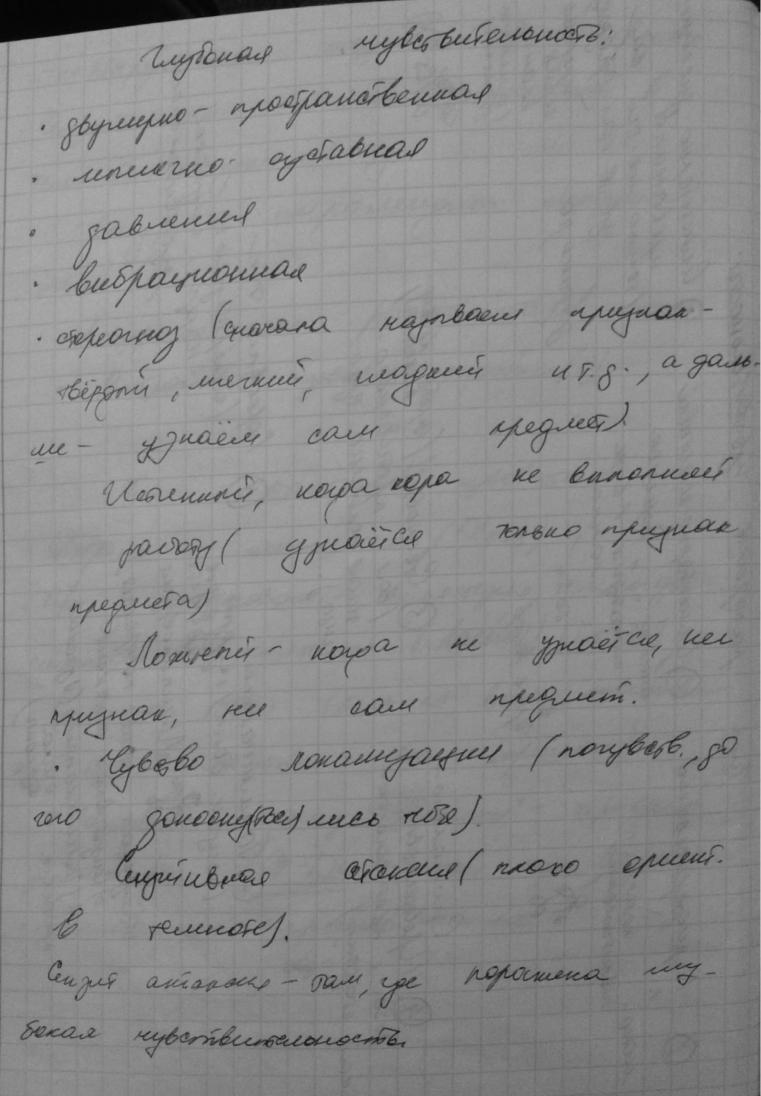 Глубокая чувствительность:
· двумерно-пространственная
· мышечно-суставная
· давления
· вибрационная
· стереогноз (сначала называем признак-
твёрдый, мягкий, гладкий и т.д., а даль-
ше - узнаём сам предмет)
Истинный, когда кора не выполняет
работу (узнаётся только признак
предмета)
Ложный - когда не узнаётся, ни
признак, ни сам предмет.
· Чувство локализации (почувств., до
чего тебя)
Сенситивная атаксия (плохо ориент.
в темноте).
Сензит атаксия - там, где поражена глу-
бокая чувствительность